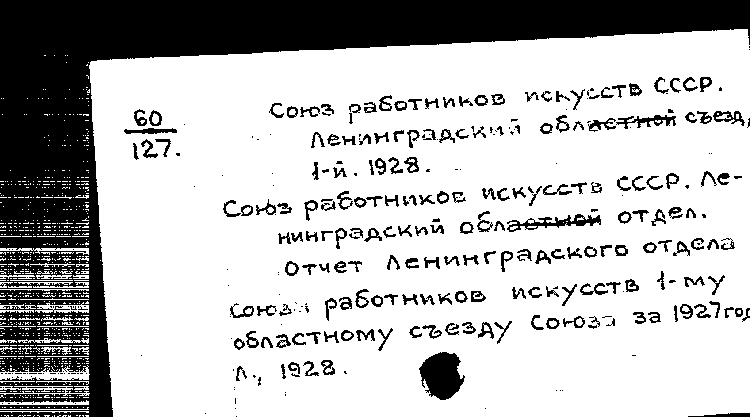 60
127.
Союз работников искусств СССР.
Ленинградский областной съезд,
1-й. 1928.
Союз работников искусств СССР. Ле-
нинградский областной отдел.
Отчет Ленинградского отдела
Союза работников искусств 1-му
областному съезду Союза за 1927 год
Л., 1928.